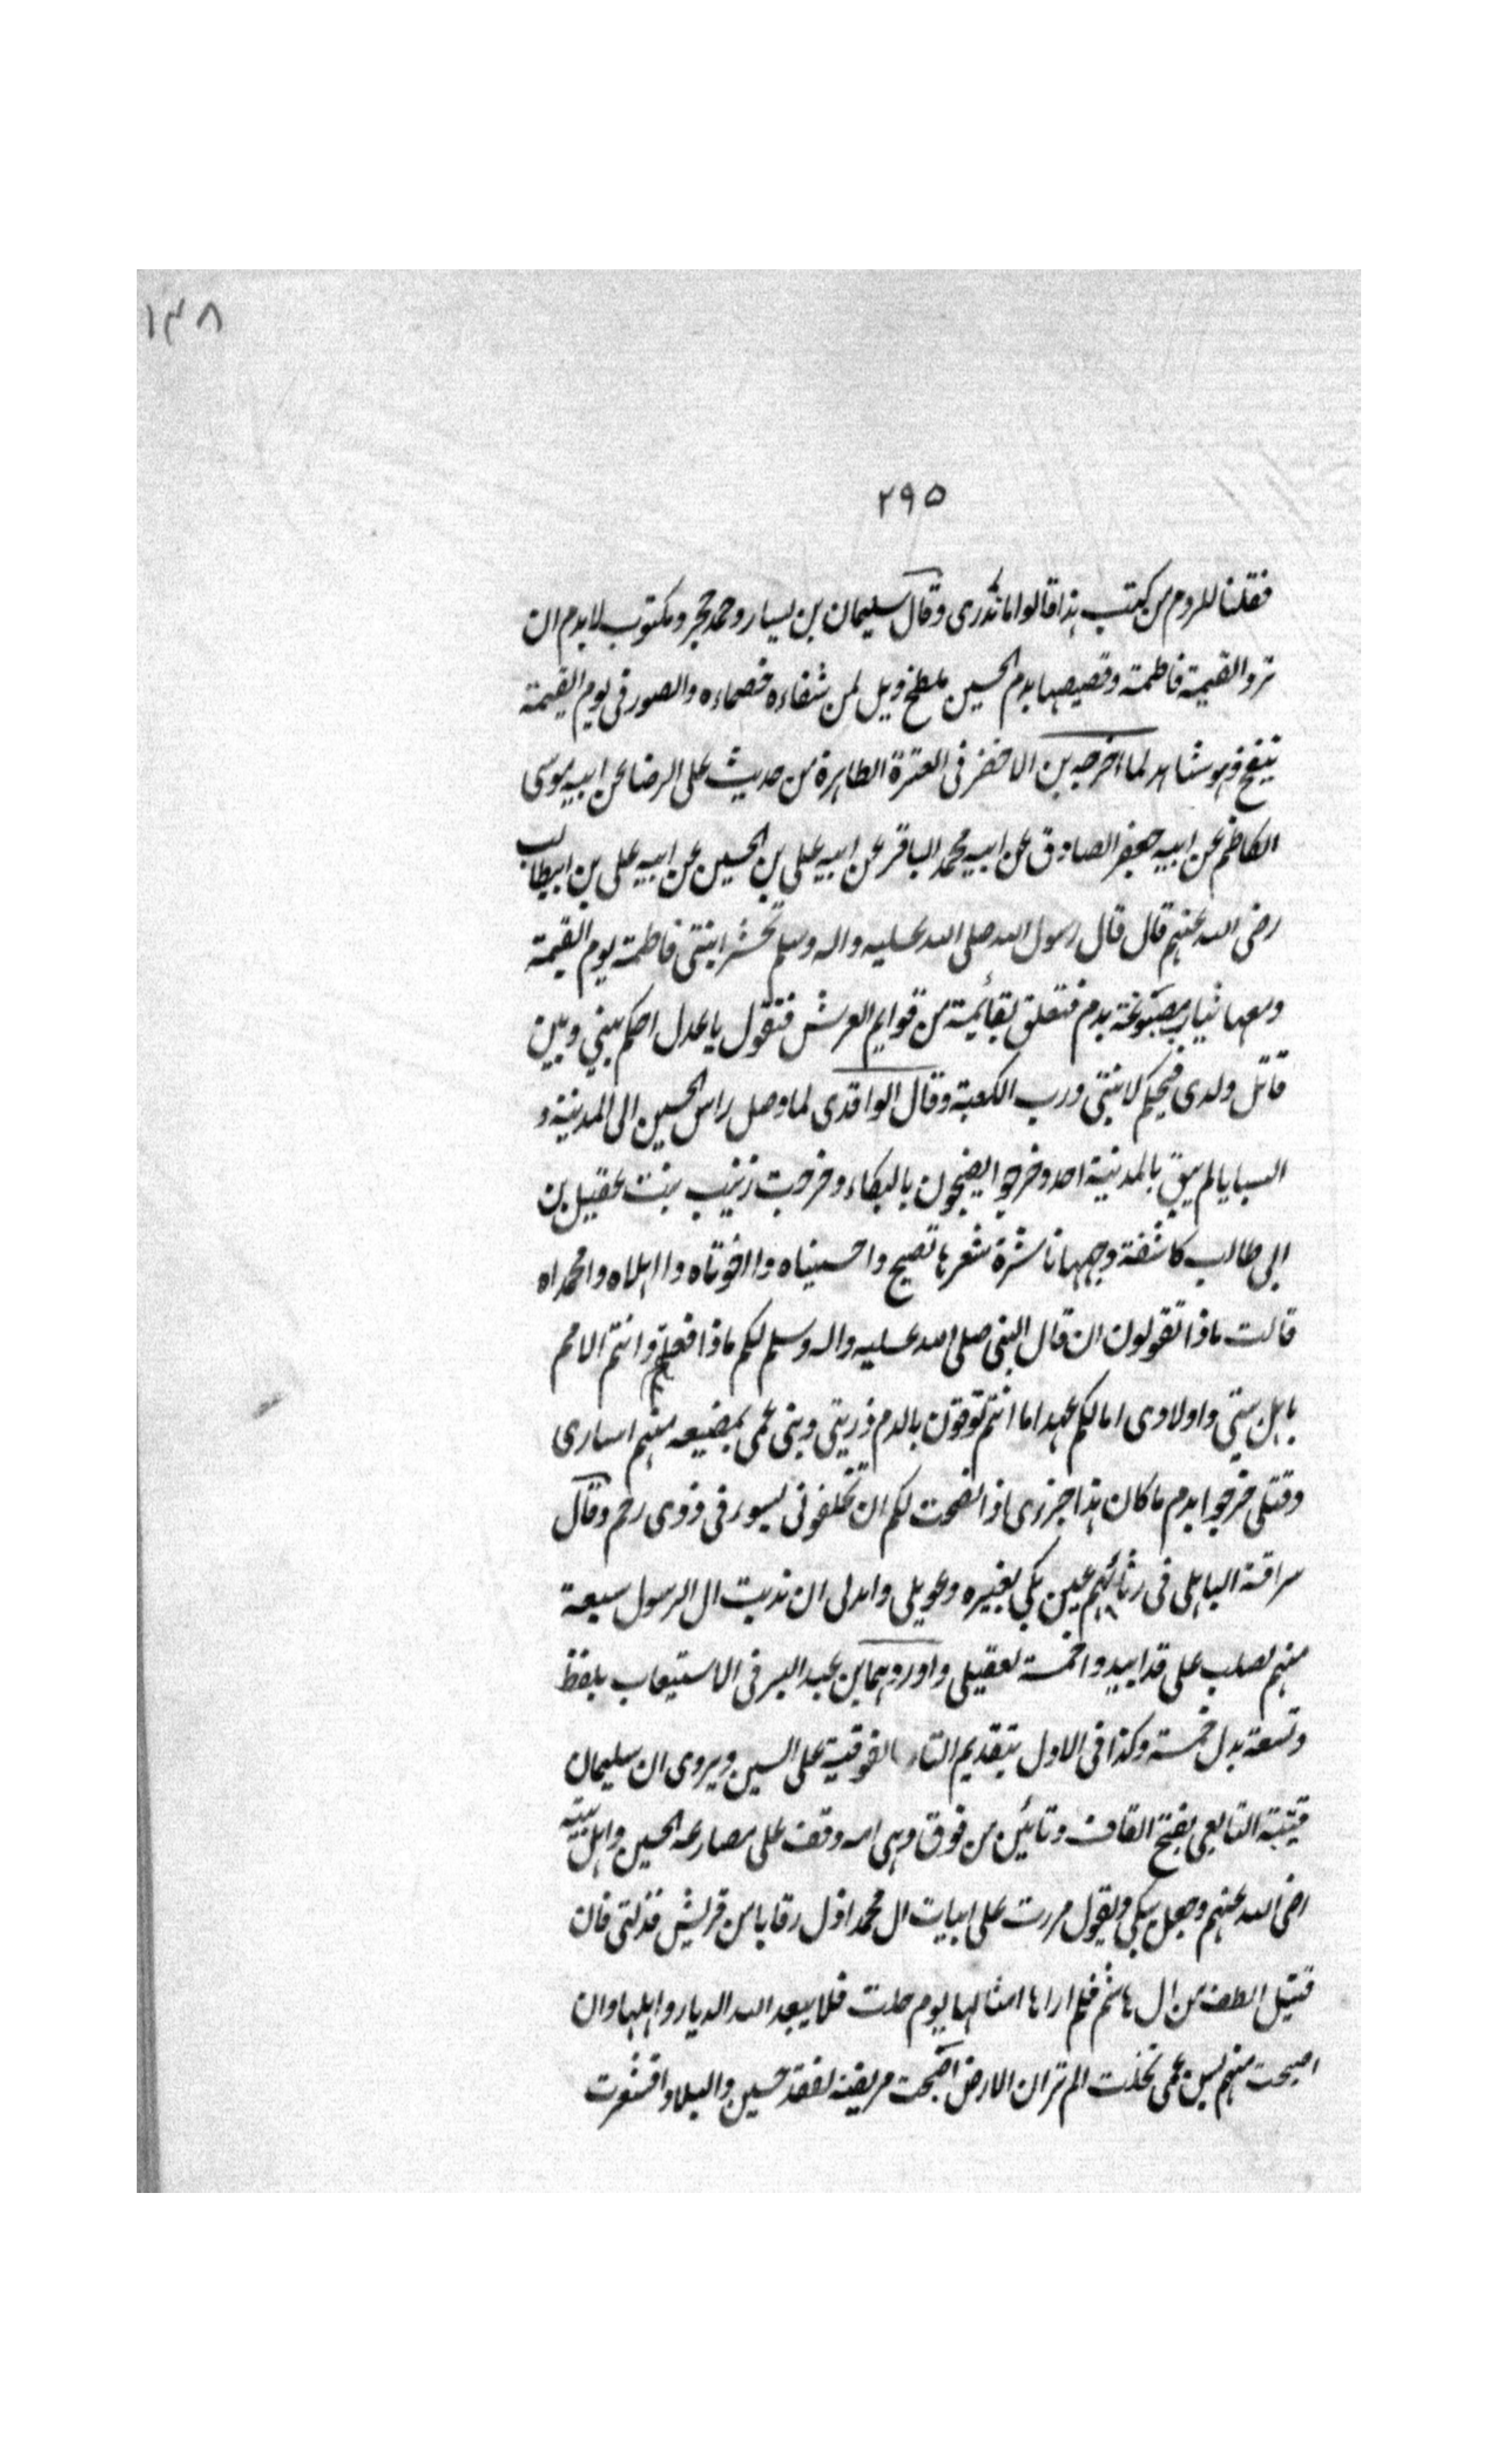 ١٣٨
٢٩٥
فقلنا للروم من كتب هذا قالوا ما ندرى وقال سليمان بن يسار وجد حجر ومكتوب لابد من ان
ترد القيمة فاطمة وقميصها بدم الحسين ملطخ ويل لمن شفعاءه خصماءه والصور فى يوم القيمة
ينفخ وهو شاهد لما اخرجه بن الاخضر فى العترة الطاهرة من حديث على الرضا عن ابيه موسى
الكاظم عن ابيه جعفر الصادق عن ابيه محمد الباقر عن ابيه على بن الحسين عن ابيه على بن ابيطالب
رضى الله عنهم قال قال رسول الله صلى الله عليه واله وسلم تحشر ابنتى فاطمة يوم القيمة
ومعها ثياب مصبوغة بدم فتعلق بقائمة من قوايم العرش فتقول يا عدل احكم بينى وبين
قاتل ولدى فيحكم لابنتى ورب الكعبة وقال الواقدى لما وصل راس الحسين الى المدينة و
السبايا لم يبق بالمدينة احد وخرجوا يضجون بالبكاء وخرجت زينب بنت عقيل بن
ابى طالب كاشفة وجهها ناشرة شعرها تصيح واحسيناه وااخوتاه وااهلاه وامحمداه
قالت ماذا تقولون ان قال النبى صلى الله عليه واله وسلم لكم ماذا فعلتم وانتم الامم
باهل بيتى واولادى امالكم عهد اما انتم توفون بالدم ذريتى وبنى عمى بمضيعه منهم اسارى
وقتلى ضرجوا بدم ما كان هذا جزءى اذ نصحت لكم ان تخلفونى بسوء فى ذوى رحم وقال
سراقة الباهلى فى رثائهم عين بكى بعبره وعويل واندبى ان ندبت ال الرسول سبعة
منهم لصلب على قد ابيدوا خمسة لعقيل واوردهما بن عبد البر فى الاستيعاب بلفظ
وتسعة بدل خمسة وكذا فى الاول بتقديم التاء الفوقية على السين ويروى ان سليمان
قتيبة التابعى بفتح القاف وتائين من فوق وهى امه وقف على مصارعه الحسين واهل بيته
رضى الله عنهم وجعل يبكى ويقول مررت على ابيات ال محمد اذل رقابا من قريش فذلتى فان
قتيل الطف من ال هاشم فلم ارا ها امثالها يوم حلت فلا يبعد الله الديار واهلها وان
اصبحت منهم تخلت الم تر ان الارض اضحت مريضة لفقد حسين والبلاد اقشعرت